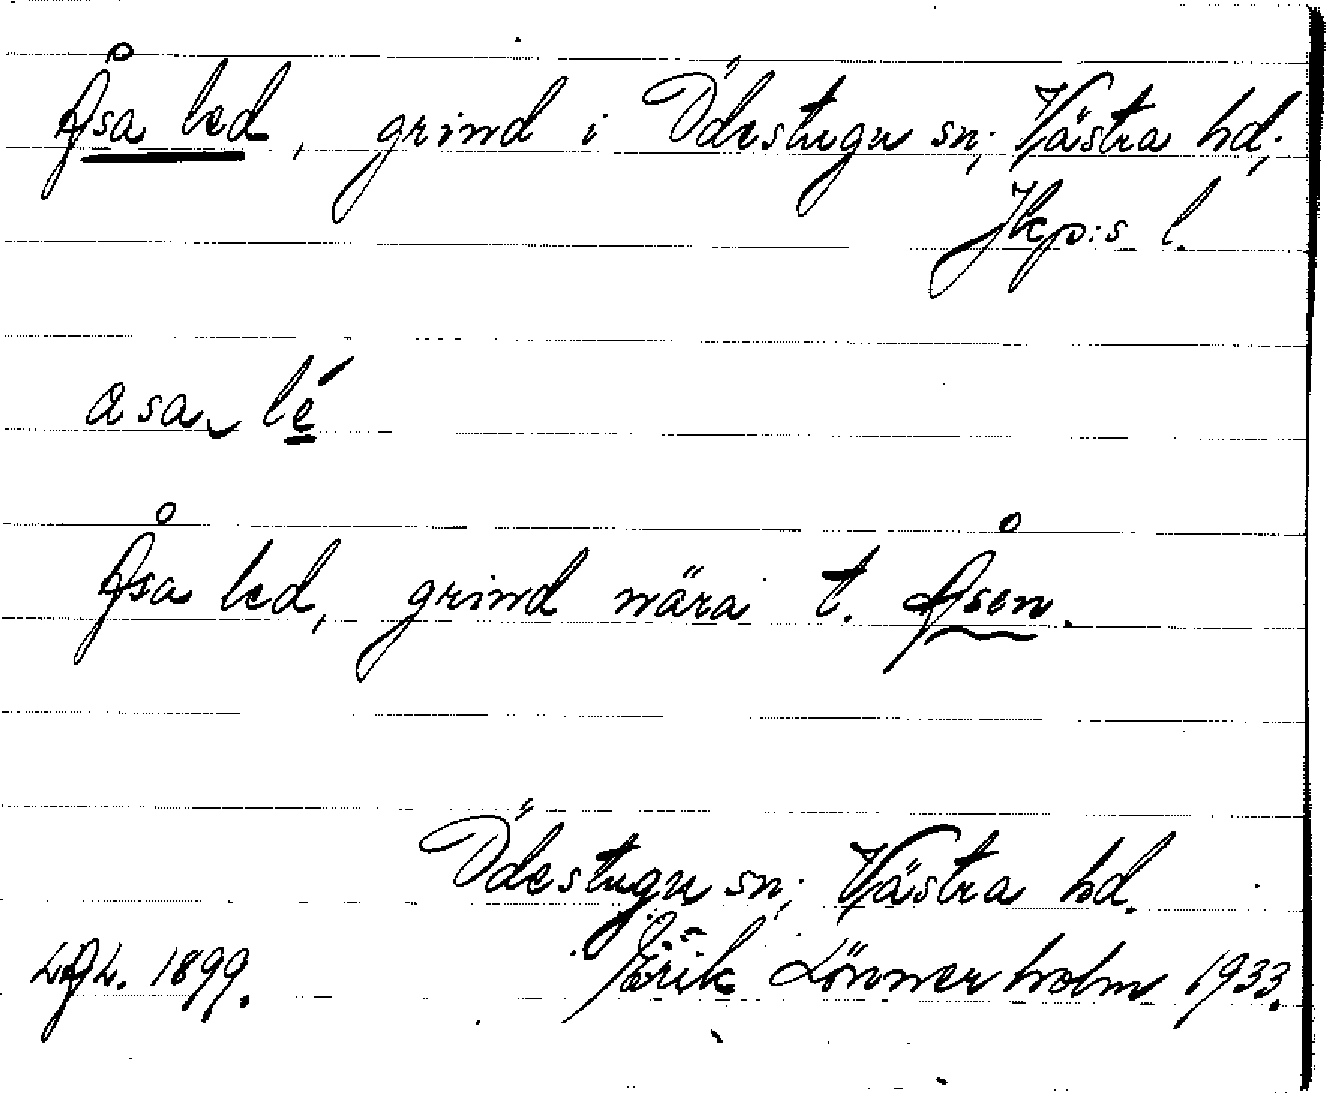 Åsa led, grind i Ödestugu sn; Västra hd;
Jkp:s l.
asa lé
Åsa led, grind nära t. Åsen.
Ödestugu sn; Västra hd.
1899. Erik Lönnerholm 1933.